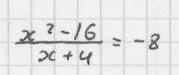 (x²-16)/(x+4) = -8